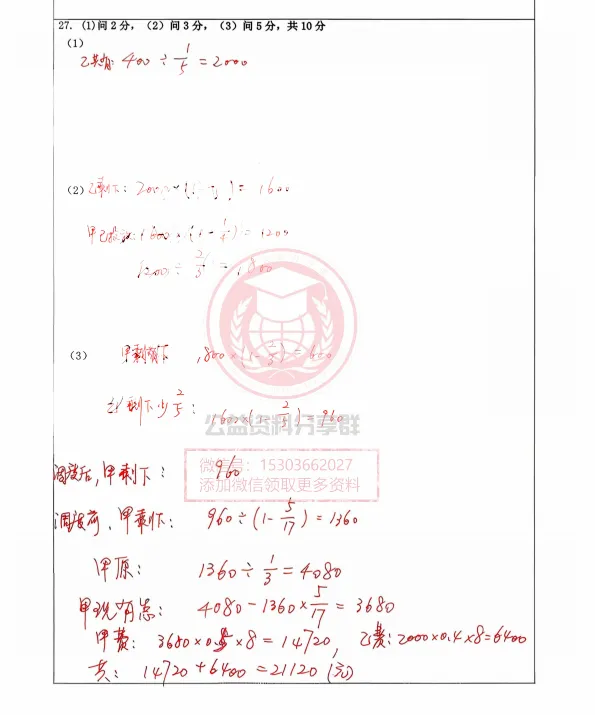 27. (1)问2分，(2) 问3分，(3) 问5分，共10分
(1)
乙共有: 400 ÷ 1/5 = 2000
(2) 乙剩下: 2000 × (1 - 1/5) = 1600
甲已 1600 × (1 - 1/4) = 1200
1200 ÷ 2/3 = 1800
(3) 甲剩下 1800 × (1 - 2/3) = 600
乙剩下少 2/5: 1600×(1-2/5) = 960
公益资料分享群
微信号: 15303662027
添加微信领取更多资料
调拨后, 甲剩下: 960
调拨前, 甲剩下: 960 ÷ (1- 5/17) = 1360
甲原: 1360 ÷ 1/3 = 4080
甲现有总: 4080 - 1360 × 5/17 = 3680
甲费: 3680×0.5×8 = 14720, 乙费: 2000×0.4×8=6400
共: 14720 + 6400 = 21120 (元)